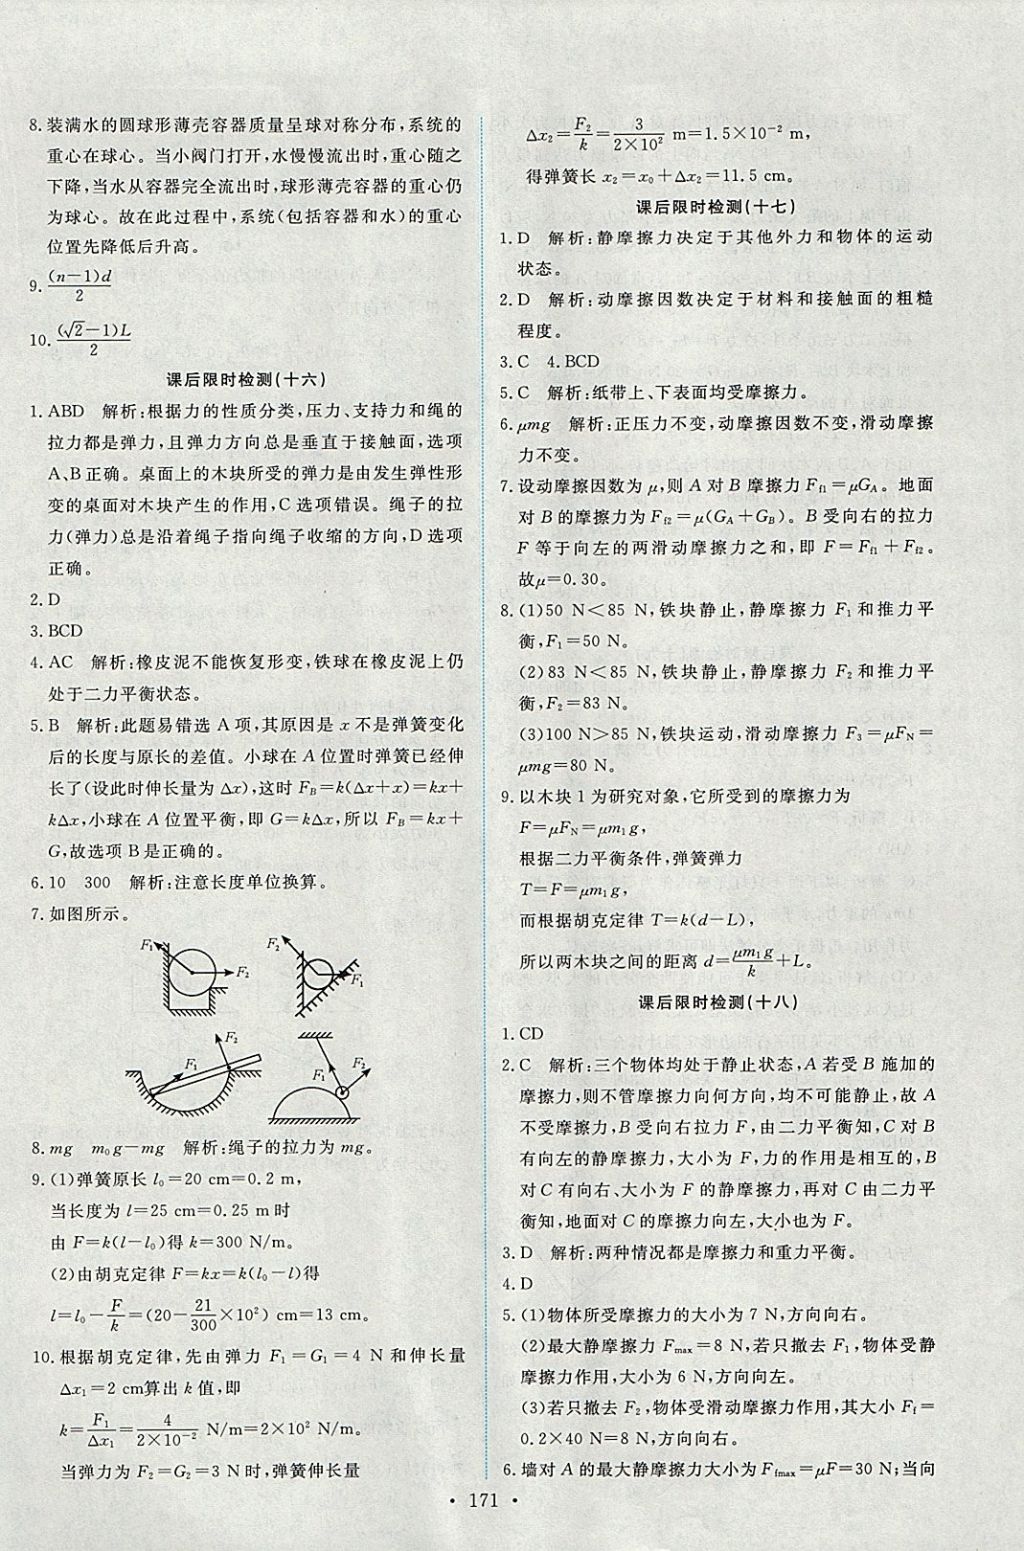 8.装满水的圆球形薄壳容器质量呈球对称分布,系统的
重心在球心。当小阀门打开,水慢慢流出时,重心随之
下降,当水从容器完全流出时,球形薄壳容器的重心仍
为球心。故在此过程中,系统(包括容器和水)的重心
位置先降低后升高。
9. (n-1)d/2
10. (√2-1)L/2
课后限时检测(十六)
1.ABD 解析:根据力的性质分类,压力、支持力和绳的
拉力都是弹力,且弹力方向总是垂直于接触面,选项
A、B正确。桌面上的木块所受的弹力是由发生弹性形
变的桌面对木块产生的作用,C选项错误。绳子的拉
力(弹力)总是沿着绳子指向绳子收缩的方向,D选项
正确。
2.D
3.BCD
4.AC 解析:橡皮泥不能恢复形变,铁球在橡皮泥上仍
处于二力平衡状态。
5.B 解析:此题易错选 A 项,其原因是 x 不是弹簧变化
后的长度与原长的差值。小球在 A 位置时弹簧已经伸
长了(设此时伸长量为 Δx),这时 F_B=k(Δx+x)=kx+
kΔx,小球在 A 位置平衡,即 G=kΔx,所以 F_B=kx+
G,故选项 B 是正确的。
6.10 300 解析:注意长度单位换算。
7.如图所示。
F₁ F₂ F₂ F₁
F₂ F₁ F₁ F₂
8.mg m₀g-mg 解析:绳子的拉力为 mg。
9.(1)弹簧原长 l₀=20 cm=0.2 m,
当长度为 l=25 cm=0.25 m时
由 F=k(l-l₀)得 k=300 N/m。
(2)由胡克定律 F=kx=k(l₀-l)得
l=l₀-F/k=(20-21/300×10²) cm=13 cm。
10.根据胡克定律,先由弹力 F₁=G₁=4 N 和伸长量
Δx₁=2 cm算出 k 值,即
k=F₁/Δx₁=4/(2×10⁻²) N/m=2×10² N/m。
当弹力为 F₂=G₂=3 N 时,弹簧伸长量
Δx₂=F₂/k=3/(2×10²) m=1.5×10⁻² m,
得弹簧长 x₂=x₀+Δx₂=11.5 cm。
课后限时检测(十七)
1.D 解析:静摩擦力决定于其他外力和物体的运动
状态。
2.D 解析:动摩擦因数决定于材料和接触面的粗糙
程度。
3.C 4.BCD
5.C 解析:纸带上、下表面均受摩擦力。
6.μmg 解析:正压力不变,动摩擦因数不变,滑动摩擦
力不变。
7.设动摩擦因数为 μ,则 A 对 B 摩擦力 F_f1=μG_A。地面
对 B 的摩擦力为 F_f2=μ(G_A+G_B)。B 受向右的拉力
F 等于向左的两滑动摩擦力之和,即 F=F_f1+F_f2。
故μ=0.30。
8.(1)50 N<85 N,铁块静止,静摩擦力 F₁ 和推力平
衡,F₁=50 N。
(2)83 N<85 N,铁块静止,静摩擦力 F₂ 和推力平
衡,F₂=83 N。
(3)100 N>85 N,铁块运动,滑动摩擦力 F₃=μF_N=
μmg=80 N。
9.以木块 1 为研究对象,它所受到的摩擦力为
F=μF_N=μm₁g,
根据二力平衡条件,弹簧弹力
T=F=μm₁g,
而根据胡克定律 T=k(d-L),
所以两木块之间的距离 d=μm₁g/k+L。
课后限时检测(十八)
1.CD
2.C 解析:三个物体均处于静止状态,A 若受 B 施加的
摩擦力,则不管摩擦力向何方向,均不可能静止,故 A
不受摩擦力,B 受向右拉力 F,由二力平衡知,C 对 B
有向左的静摩擦力,大小为 F,力的作用是相互的,B
对 C 有向右、大小为 F 的静摩擦力,再对 C 由二力平
衡知,地面对 C 的摩擦力向左,大小也为 F。
3.D 解析:两种情况都是摩擦力和重力平衡。
4.D
5.(1)物体所受摩擦力的大小为 7 N,方向向右。
(2)最大静摩擦力 F_max=8 N,若只撤去 F₁,物体受静
摩擦力作用,大小为 6 N,方向向左。
(3)若只撤去 F₂,物体受滑动摩擦力作用,其大小 F_f=
0.2×40 N=8 N,方向向右。
6.墙对 A 的最大静摩擦力大小为 F_fmax=μF=30 N;当向
• 171 •